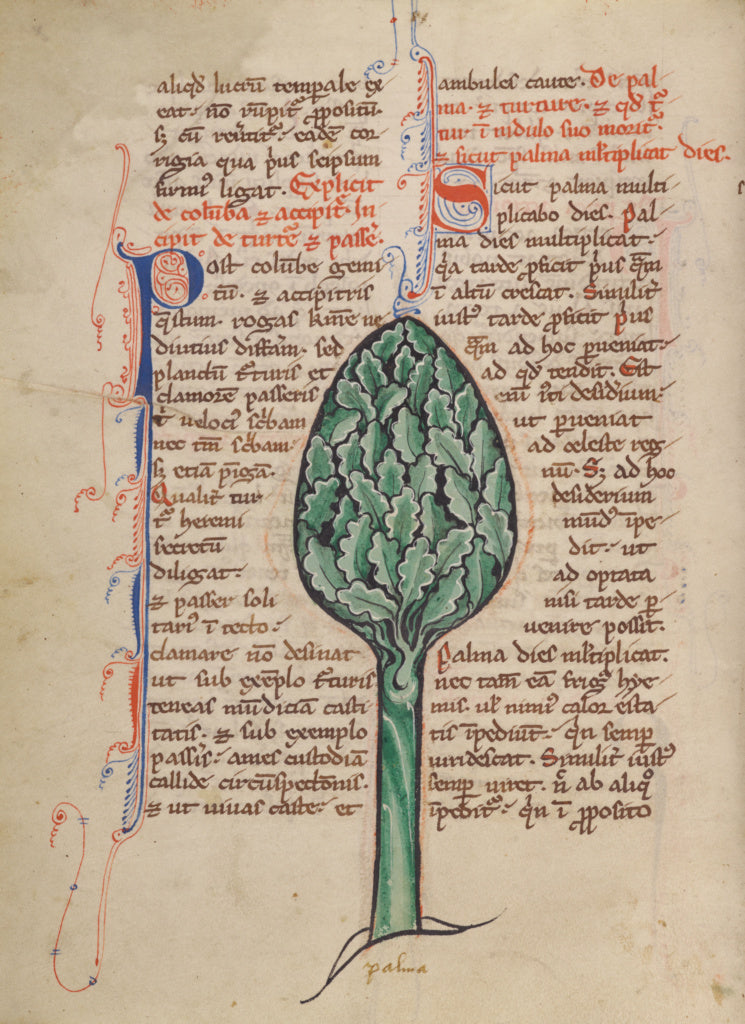 aliqd lucrū temp̄ale ex
eat· nō rūpit᷑ p̄positū·
sꝫ cū reūtit᷑· eadē cor
rigia qua p̄us seipsum
firmi᷒ ligat· Explicit
de colūba ⁊ accipit᷑· In
cipit de turt᷑e ⁊ passe᷑·
Post colūbe gemi
tū· ⁊ accipitris
q̄stum· rogas km̄e ne
diutius diff̄am· sed
planctū t᷑turis et
clamorē passeris
t᷑ veloci᷒ sc̄bam
nec tm̄ sc̄bam·
sꝫ etiā pīgā·
Qualit᷑ tur
t᷑ heremi
secretū
diligat·
⁊ passer soli
tari᷒ ī tecto·
clamare nō desinat
ut sub exēplo t᷑turis
teneas mūdiciā casti
tatis· ⁊ sub exemplo
passis᷑· ames custodiā
callide circūspectōnis·
⁊ ut vivas caste· et
ambules caute· De pal
ma· ⁊ turture· ⁊ qd t᷑
tur ī nidulo suo morit᷑·
⁊ sicut palma ml̄tiplicat dies·
Sicut palma multi
plicabo dies· Pal
ma dies multiplicat·
q̇a tarde ꝓficit p̄us q̄m
ī altū crescat· Similit᷑
iust᷒ tarde ꝓficit p̄us
q̄m ad hoc ꝑueniat·
ad qd tendit· Est
eni᷑ īti desidium᷑
ut ꝑueniat
ad celeste reg
nū· Sꝫ ad hoc
desiderium
mūd᷒ īpe
dit· ut
ad optata
nisi tarde ꝑ
uenire possit·
Palma dies ml̄tiplicat·
nec tam̄ eā frig᷒ hye
mis· ul̄ nimi᷒ calor esta
tis īpediūt· qn̄ semꝑ
uiridescat· Similit᷑ iust᷒
semꝑ viret· n̄ ab aliqo
īpedit᷑· qn̄ ī ꝓposito
palma